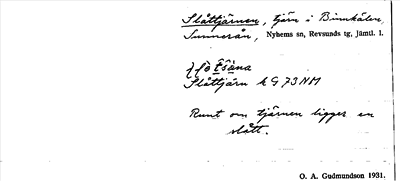 Slåttjärnen, tjärn i Binnkälen,
Sunnerån, Nyhems sn, Revsunds tg, Jämtl. l.
Slåttjärn kG 73 NM
Runt om tjärnen ligger en
slått.
O. A. Gudmundson 1931.